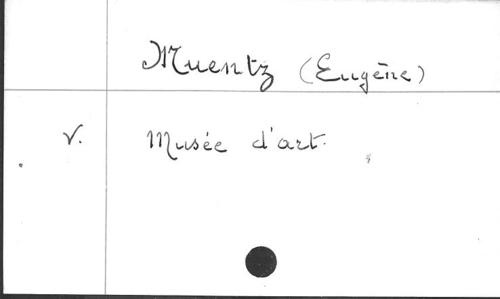 Muentz (Eugène)
V. Musée d'art.